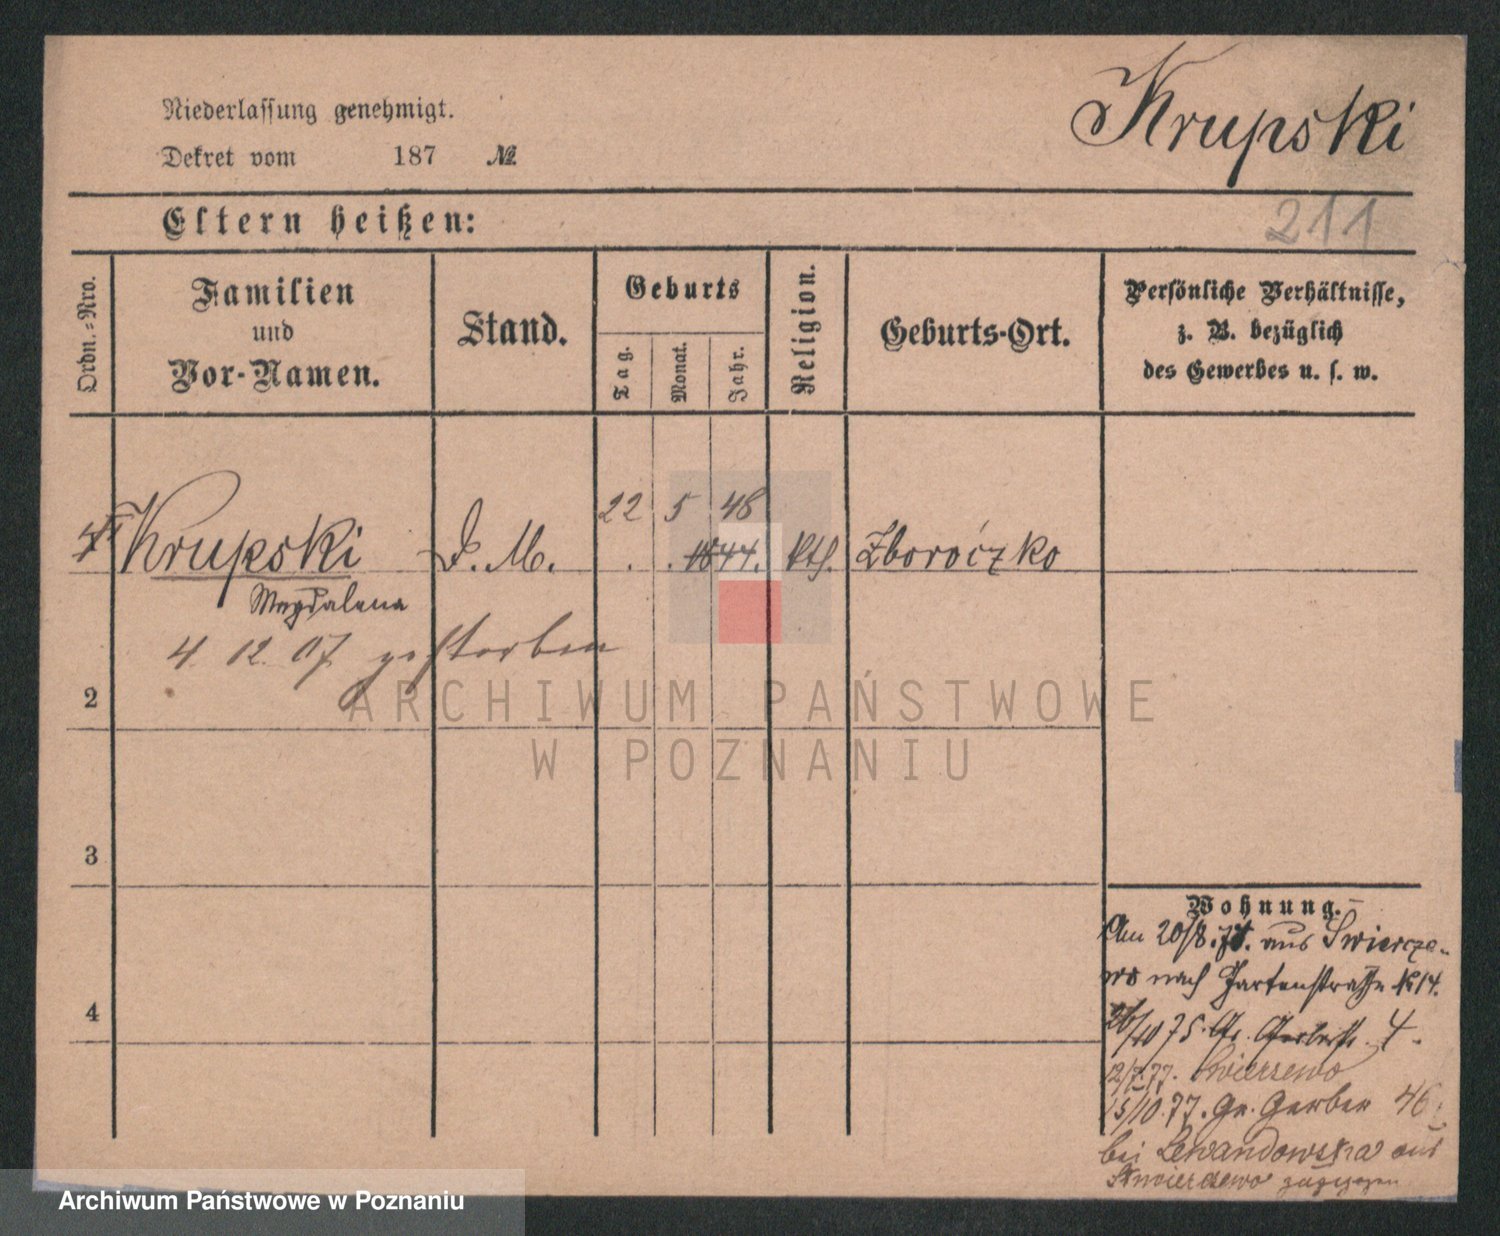 Krupski
Niederlassung genehmigt.
Dekret vom 187 №
211
Eltern heißen:
Ordn.=Nro.
Familien
und
Vor-Namen.
Stand.
Geburts
Tag.
Monat.
Jahr.
Religion.
Geburts-Ort.
Persönliche Verhältnisse,
z. B. bezüglich
des Gewerbes u. s. w.
22 5 48
Krupski D. M. 1844. kth. Zboroczko
Magdalena
4. 12. 07 gestorben
2
3
4
Wohnung.
Am 20/8.74. aus Swiercze-
wo nach Gartenstraße No 14.
26/10 75 Gr. Gerberstr. 4.
12/7.77. Swiersewo
15/10.77. Gr. Gerber 46
bei Lewandowska aus
zugezogen
ARCHIWUM PAŃSTWOWE
W POZNANIU
Archiwum Państwowe w Poznaniu